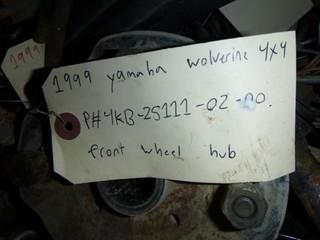 1999
1999 yamaha wolverine 4x4
P# 4KB-25111-02-00.
front wheel hub